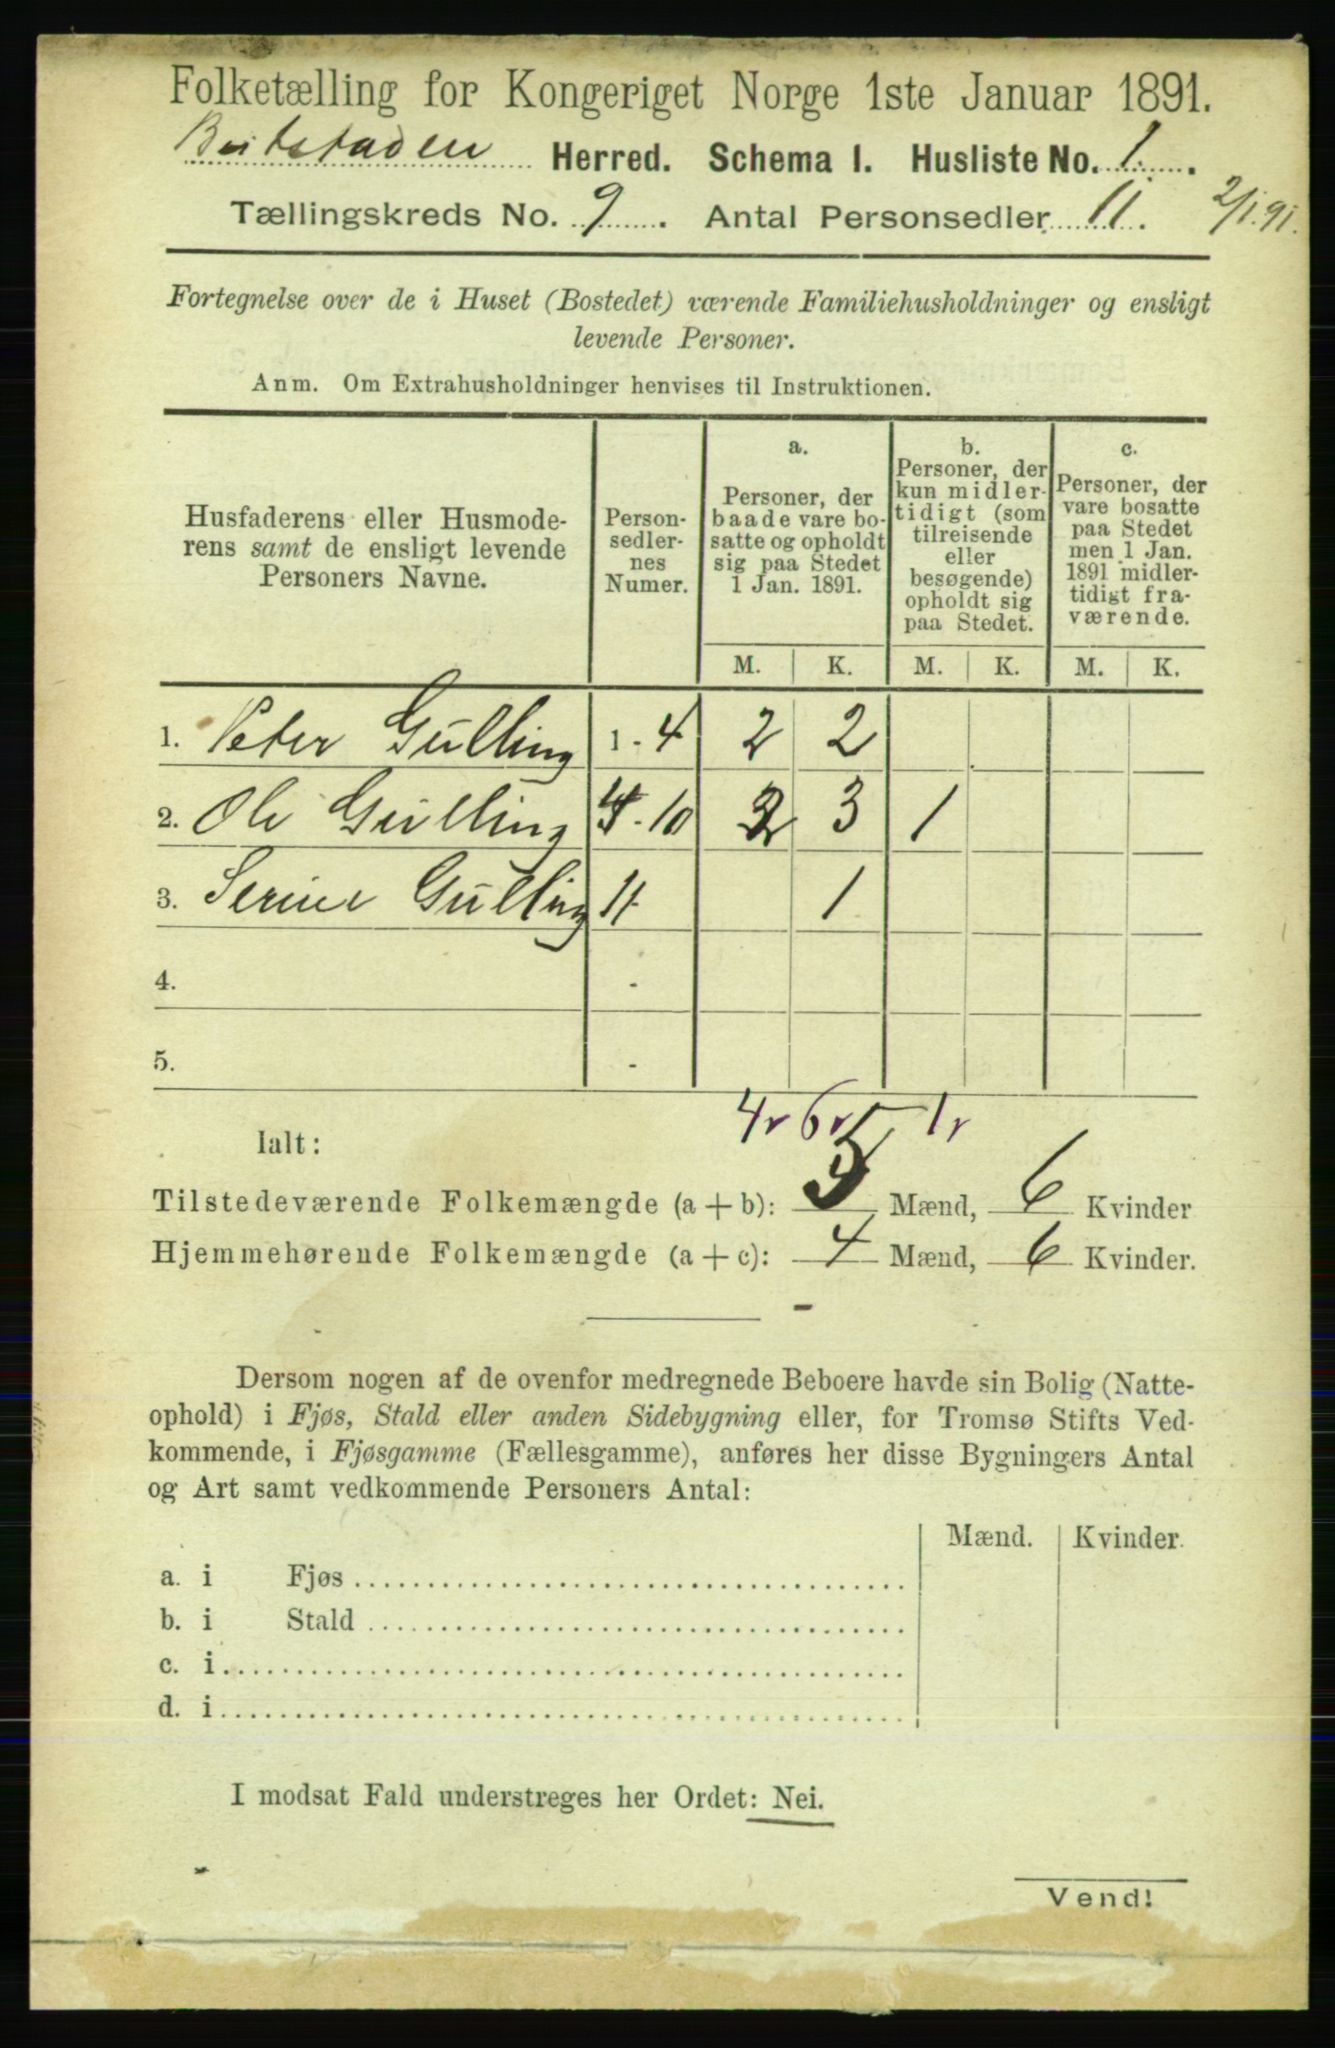 Folketælling for Kongeriget Norge 1ste Januar 1891.
Beitstaden Herred. Schema I. Husliste No. 1.
Tællingskreds No. 9. Antal Personsedler 11. 2/1.91.
Fortegnelse over de i Huset (Bostedet) værende Familiehusholdninger og ensligt
levende Personer.
Anm. Om Extrahusholdninger henvises til Instruktionen.
Husfaderens eller Husmode-
rens samt de ensligt levende
Personers Navne.
Person-
sedler-
nes
Numer.
a.
Personer, der
baade vare bo-
satte og opholdt
sig paa Stedet
1 Jan. 1891.
b.
Personer, der
kun midler-
tidigt (som
tilreisende
eller
besøgende)
opholdt sig
paa Stedet.
c.
Personer, der
vare bosatte
paa Stedet
men 1 Jan.
1891 midler-
tidigt fra-
værende.
M. K. M. K. M. K.
1. Peter Gulling 1 - 4 2 2
2. Ole Gulling - 10 2 3 1
3. Serine Gulling 11 1
4. -
5. -
4 6 1
Ialt:
Tilstedeværende Folkemængde (a + b): 5 Mænd, 6 Kvinder
Hjemmehørende Folkemængde (a + c): 4 Mænd, 6 Kvinder.
Dersom nogen af de ovenfor medregnede Beboere havde sin Bolig (Natte-
ophold) i Fjøs, Stald eller anden Sidebygning eller, for Tromsø Stifts Ved-
kommende, i Fjøsgamme (Fællesgamme), anføres her disse Bygningers Antal
og Art samt vedkommende Personers Antal:
Mænd. Kvinder.
a. i Fjøs
b. i Stald
c. i
d. i
I modsat Fald understreges her Ordet: Nei.
Vend!